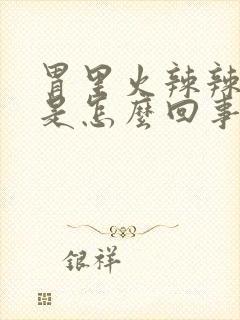 胃里火辣辣
是怎麼回事
银祥